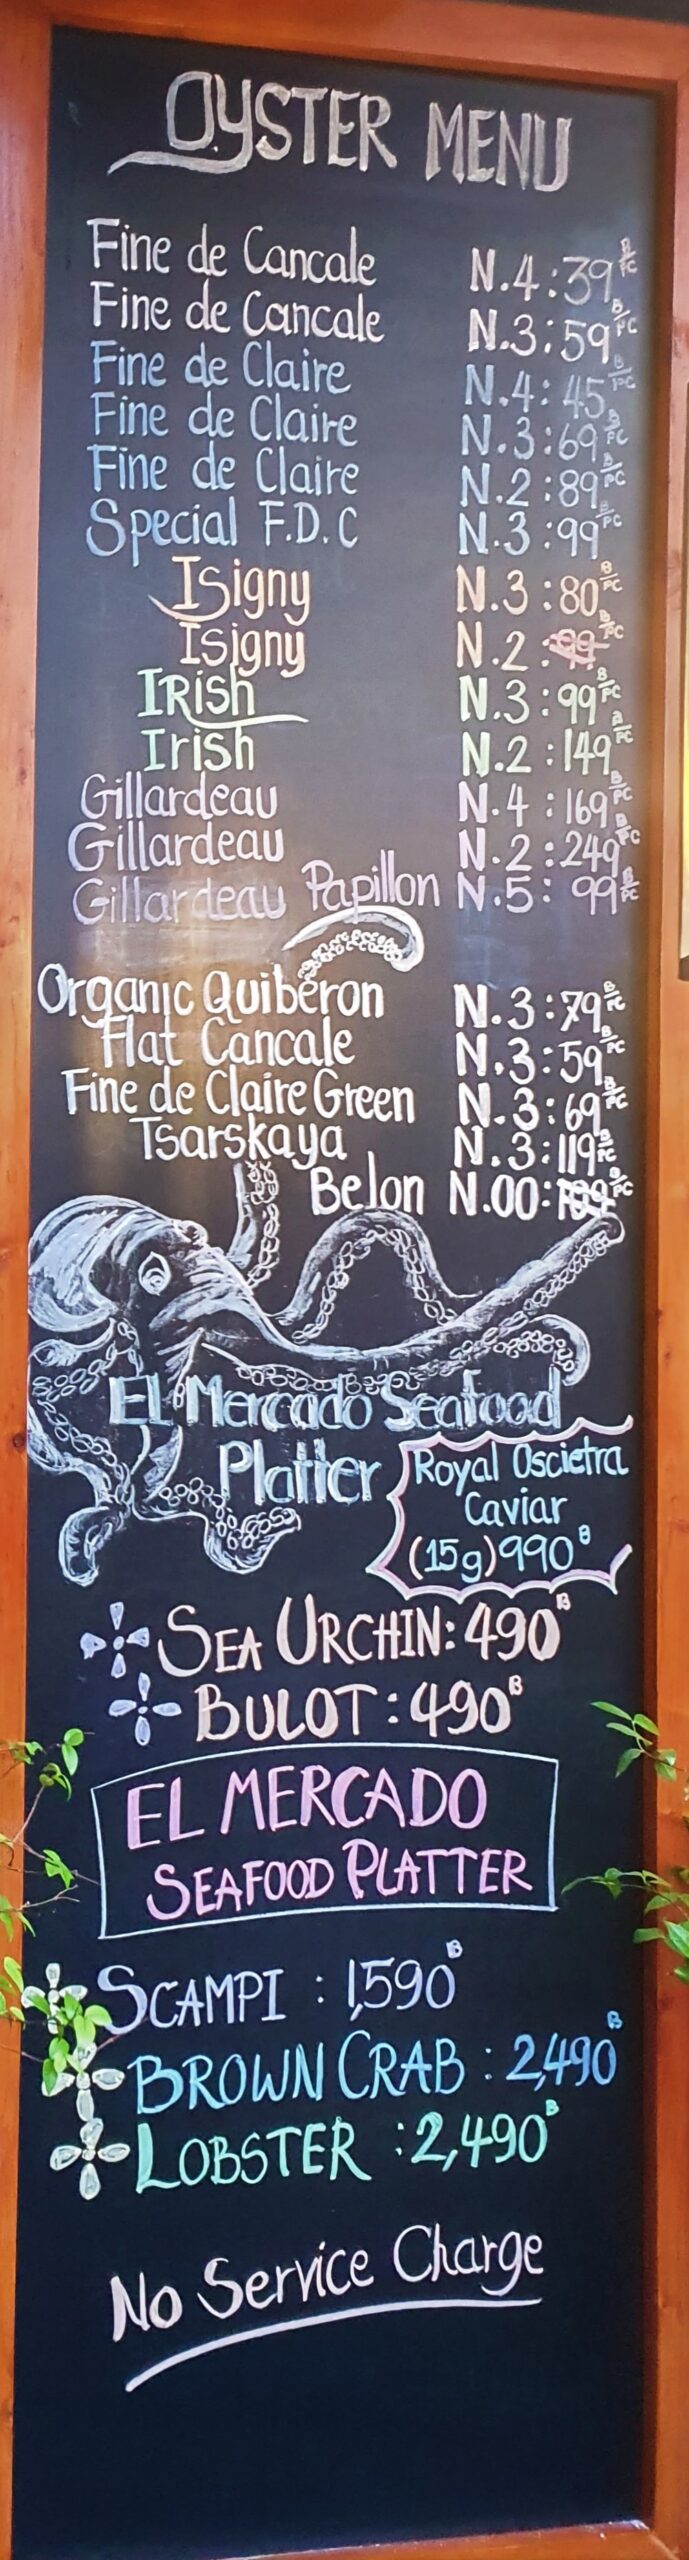 OYSTER MENU
Fine de Cancale N.4 : 39 B/PC
Fine de Cancale N.3 : 59 B/PC
Fine de Claire N.4 : 45 B/PC
Fine de Claire N.3 : 69 B/PC
Fine de Claire N.2 : 89 B/PC
Special F.D.C N.3 : 99 B/PC
Isigny N.3 : 80 B/PC
Isigny N.2 : 99 B/PC
IRish N.3 : 99 B/PC
Irish N.2 : 149 B/PC
Gillardeau N.4 : 169 B/PC
Gillardeau N.2 : 249 B/PC
Gillardeau Papillon N.5 : 99 B/PC
Organic Quiberon N.3 : 79 B/PC
Flat Cancale N.3 : 59 B/PC
Fine de Claire Green N.3 : 69 B/PC
Tsarskaya N.3 : 119 B/PC
Belon N.00 : B/PC
EL Mercado Seafood
Platter
Royal Oscietra
Caviar
(15g) 990 B
SEA URCHIN : 490 B
BULOT : 490 B
EL MERCADO
SEAFOOD PLATTER
SCAMPI : 1,590 B
BROWN CRAB : 2,490 B
LOBSTER : 2,490 B
No Service Charge